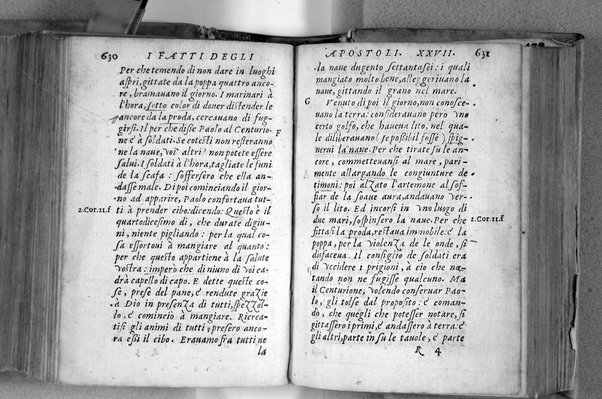 630
I FATTI DEGLI
Per che temendo di non dare in luoghi
aspri, gittate da la poppa quattro anco-
re, bramauano il giorno. I marinari à
l'hora, sotto color di douer distender le
ancore da la proda, cercauano di fug-
girsi. Il per che disse Paolo al Centurio-
F
ne e à soldati: Se cotesti non resteranno
ne la naue, voi altri non potete essere
salui. I soldati à l'hora, tagliate le funi
de la scafa: soffersero che ella an-
dasse male. Di poi cominciando il gior-
no ad apparire, Paolo confortaua tut-
2.Cor.11.f
ti à prender cibo: dicendo: Questo è il
quartodicesimo dì, che durate digiu-
ni, niente pigliando: per la qual co-
sa essortoui à mangiare al quanto:
per che questo appartiene à la salute
vostra: impero che di niuno di voi ca-
drà capello di capo. E dette queste co-
se, prese del pane, e rendute grazie
à Dio in presenza di tutti, spezzol-
lo, e cominciò à mangiare. Ricrea-
tisi gli animi di tutti, presero anco-
ra essi il cibo. Erauamo fra tutti ne
la
APOSTOLI. XXVII.
631
la naue dugento settantasei: i quali
mangiato molto bene, alleggeriuano la
naue, gittando il grano nel mare.
G
Venuto di poi il giorno, non conosce-
uano la terra: considerauano però vno
certo golfo, che haueua lito, nel qua-
le diliberauano (se possibil fosse) spig-
nerui la naue. Per che tirate sù le an-
core, commetteuansi al mare, pari-
mente allargando le congiunture de
timoni: poi alzato l'artemone al sof-
fiar de la soaue aura, andauano ver-
so il lito. Ed incorsi in vno luogo di
2.Cor.11.f
due mari, sospinsero la naue. Per che
fittasi la proda, restaua immobile: e la
poppa, per la violenza de le onde, si
disfaceua. Il consiglio de soldati era
di vccidere i prigioni, à cio che no-
tando non ne fugisse qualcuno. Ma
il Centurione, volendo conseruar Pao-
lo, gli tolse dal proposito: e coman-
dò, che quegli che potesser notare, si
gittassero i primi, e andassero à terra: e
gli altri, parte in su le tauole, e parte
R 4